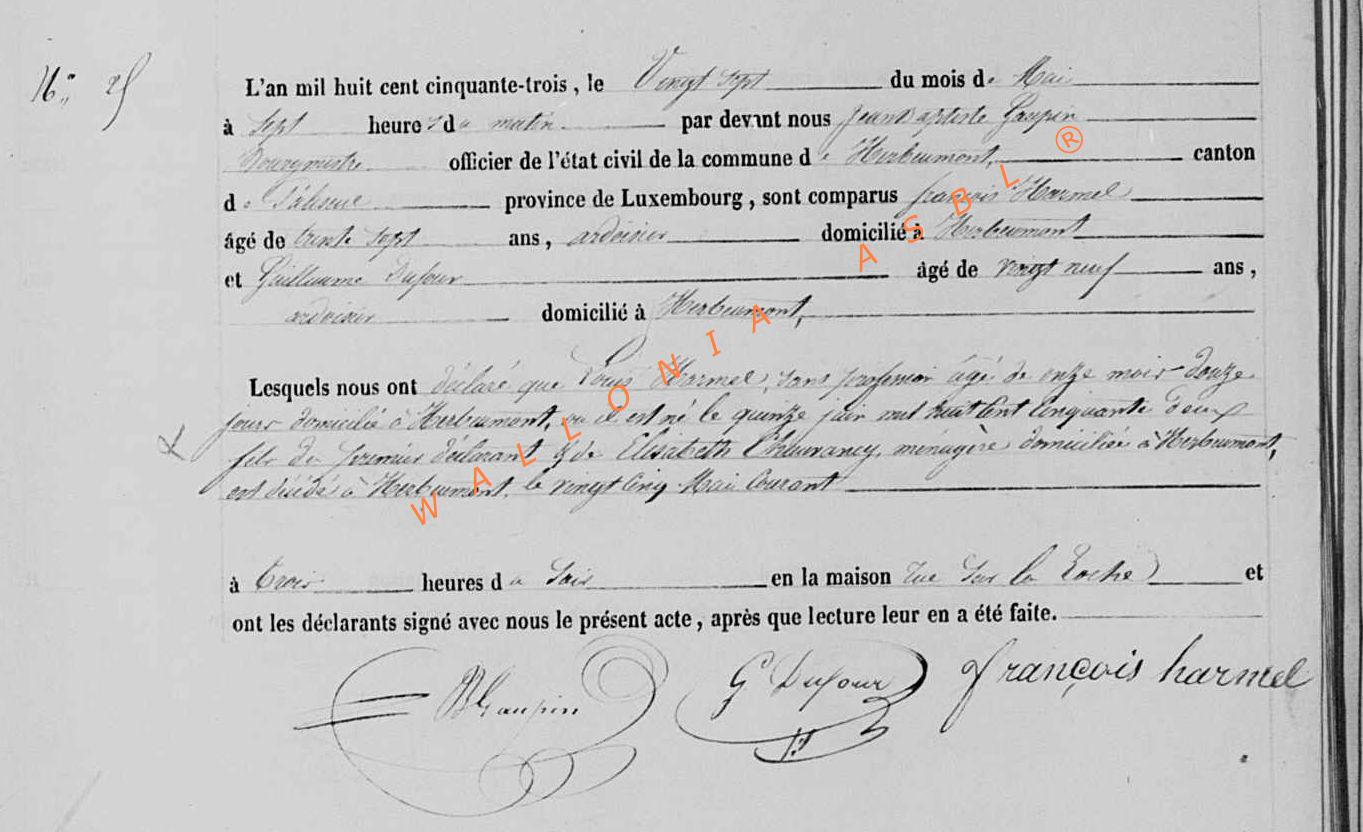 N° 25
L'an mil huit cent cinquante-trois, le Vingt sept du mois de Mai
à Sept heures du matin par devant nous Jean Baptiste Gaupin
Bourgmestre officier de l'état civil de la commune de Herbeumont, canton
de Paliseul province de Luxembourg, sont comparus françois Harmel
âgé de trente sept ans, ardoisier domicilié à Herbeumont
et Guillaume Dufour âgé de vingt neuf ans,
ardoisier domicilié à Herbeumont,
Lesquels nous ont déclaré que Louis Harmel, sans profession âgé de onze mois douze
jours domicilié à Herbeumont, ou il est né le quinze juin mil huit cent cinquante deux
fils du premier déclarant & de Elisabeth Chevrancy, ménagère domiciliée à Herbeumont,
est décédé à Herbeumont, le vingt cinq Mai Courant
à trois heures du Soir en la maison rue Sur la Roche et
ont les déclarants signé avec nous le présent acte, après que lecture leur en a été faite.
JBGaupin G Dufour françois harmel
WALLONIA ASBL ®